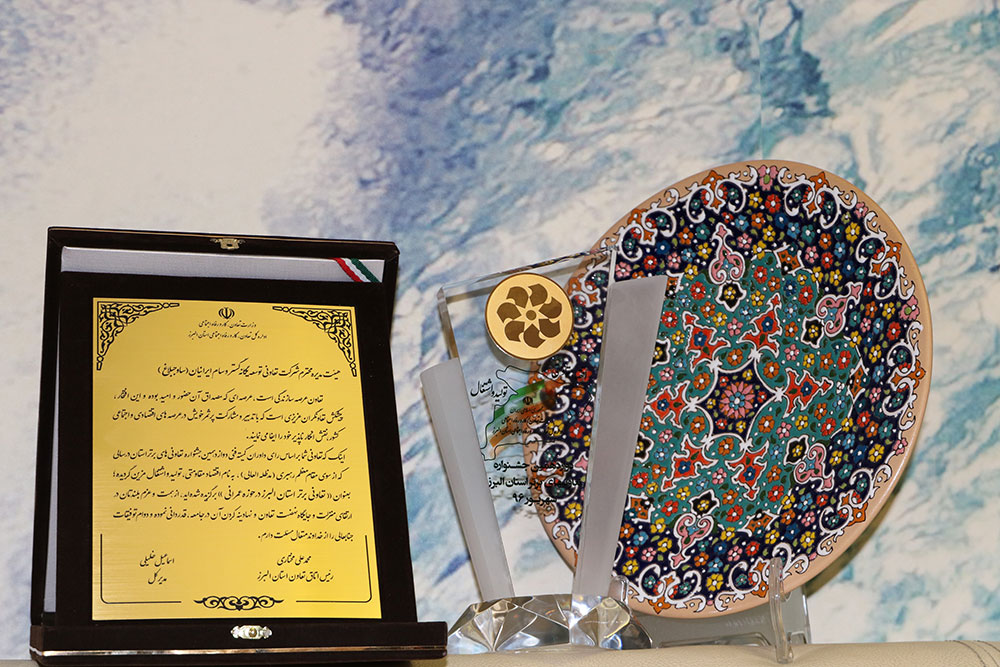 وزارت تعاون، کار و رفاه اجتماعی
اداره کل تعاون، کار و رفاه اجتماعی استان البرز
هیئت مدیره محترم شرکت تعاونی توسعه یگانه گستر وسام ایرانیان (ساوجبلاغ)
تعاون عرصه سازندگی است، عرصه ای که مصداق آن حضور و امید بوده و این افتخار،
پیشکش تعاونگران عزیزی است که با تدبیر و مشارکت پرثمر خویش در عرصه های اقتصادی و اجتماعی
کشور، نقش انکار ناپذیر خود را ایفا می نمایند.
اینک که تعاونی شما بر اساس رای داوران کمیته فنی دوازدهمین جشنواره تعاونی های برتر استان در سالی
که از سوی مقام معظم رهبری (مدظله العالی)، به نام اقتصاد مقاومتی، تولید و اشتغال مزین گردیده؛
بعنوان «تعاونی برتر استان البرز در حوزه عمرانی» برگزیده شده اید، از همت و عزم بلندتان در
ارتقای منزلت و جایگاه نهضت تعاون و نهادینه کردن آن در جامعه، قدردانی نموده و دوام توفیقات
جنابعالی را از خداوند متعال مسئلت دارم.
محمدعلی مختاری
رئیس اتاق تعاون استان البرز
اسماعیل خلیلی
مدیر کل
تولید و اشتغال
جشنواره
برتر استان البرز
۹۶